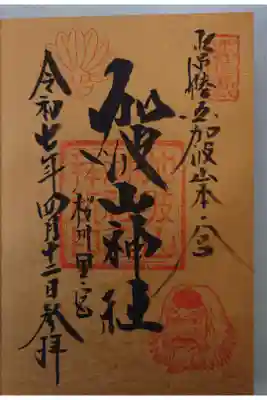 加波山本宮
加波山神社
桜川里宮
令和七年四月十二日参拝